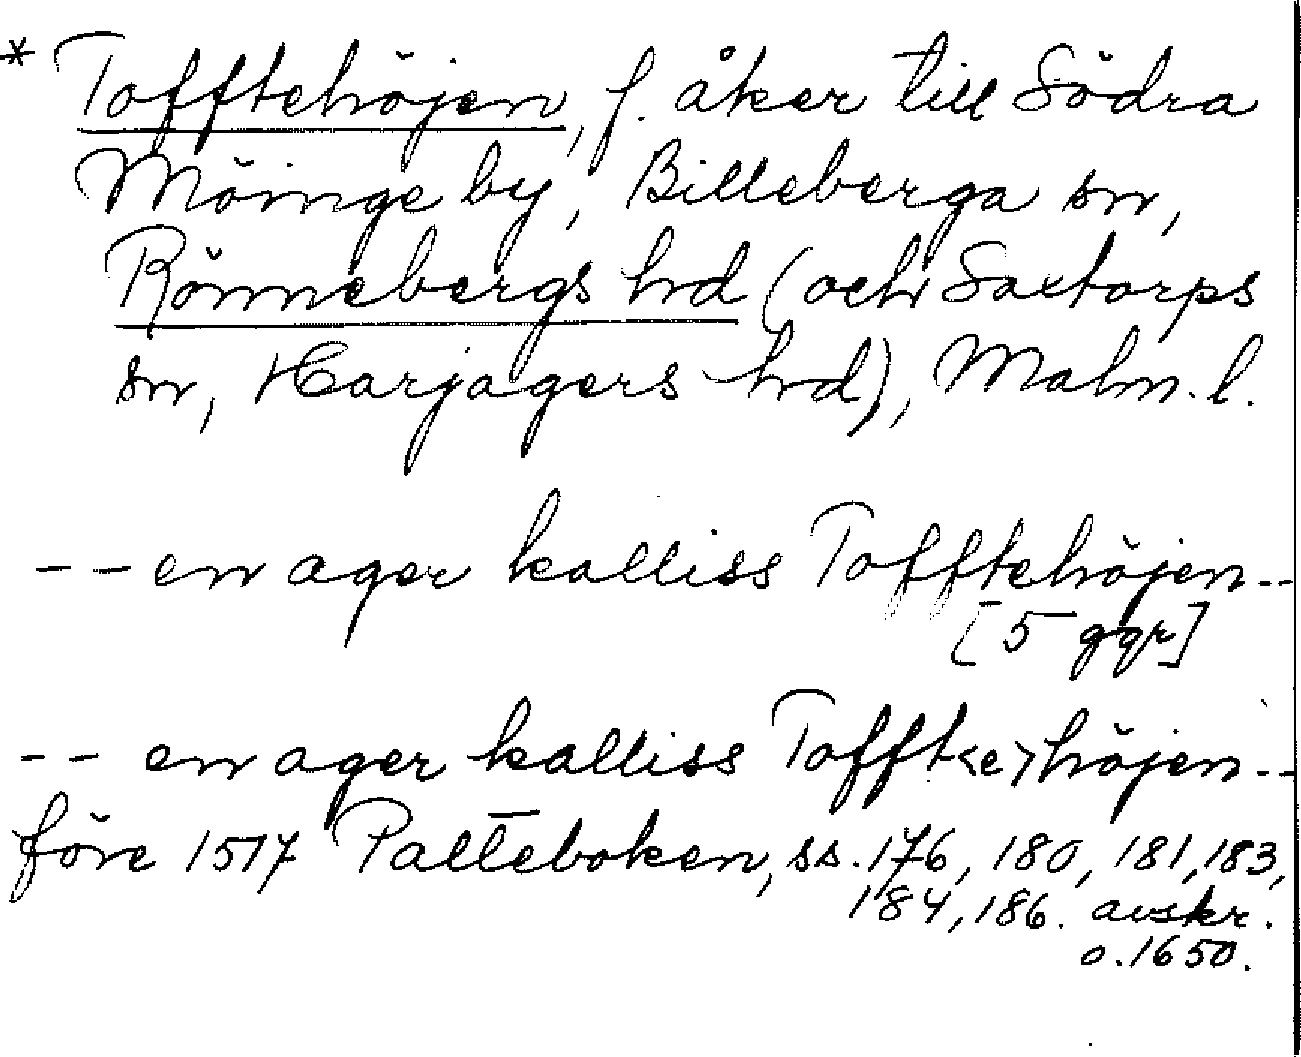 * Tofftehöjen, f. åker till Södra
Möinge by, Billeberga sn,
Rönnebergs hrd (och Saxtorps
sn, Harjagers hrd), Malm. l.
-- en ager kalliss Tofftehöjen --
[5 ggr]
-- en ager kalliss Tofft<e>höjen --
före 1517 Palteboken, ss. 176, 180, 181, 183,
184, 186. avskr.
o. 1650.